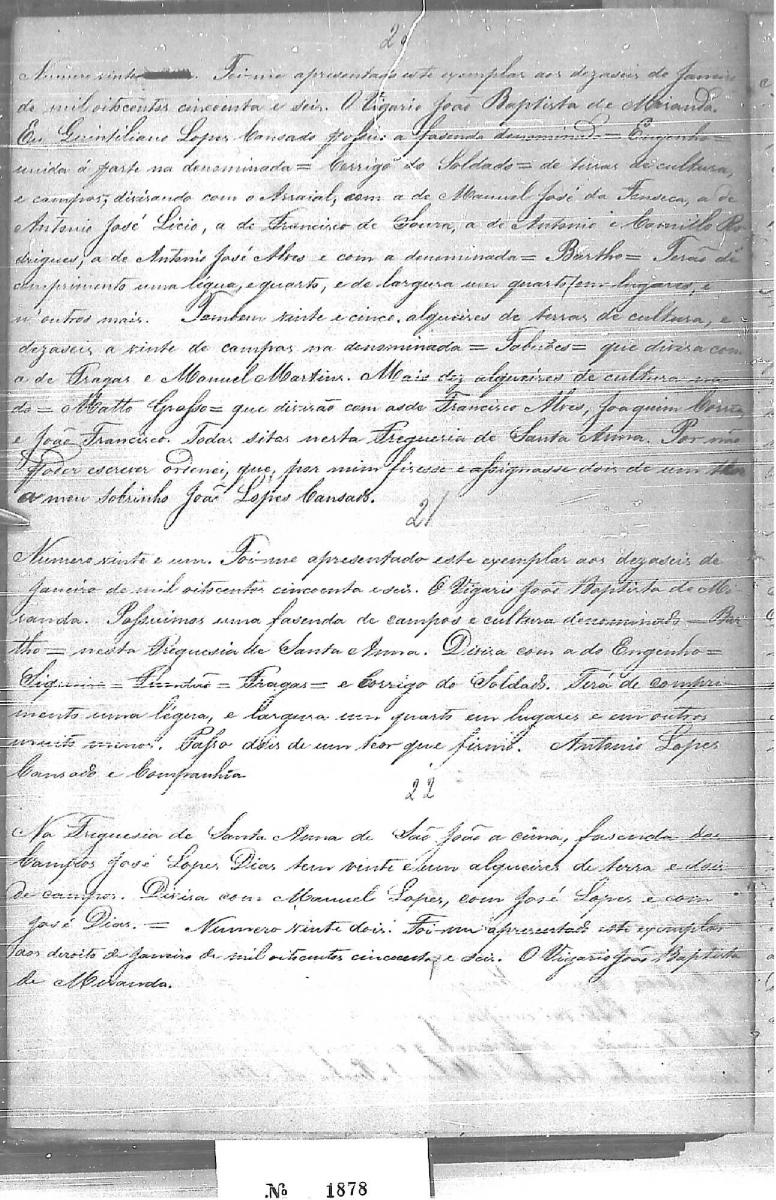 20
Numero vinte. Foi-me apresentado este exemplar aos dezaseis de Janeiro
de mil oitocentos cincoenta e seis. O Vigario João Baptista de Miranda.
Eu Quintiliano Lopes Cansado possuo a fasenda denominada = Engenho =
unida á parte na denominada = Corrigo do Soldado = de terras de cultura,
e campos, divisando com o Arraial, com a de Manuel José da Fonseca, a de
Antonio José Licio, a de Francisco de Soura, a de Antonio e Camillo Ro-
drigues, a de Antonio José Alves e com a denominada = Bartho = Terão de
comprimento uma légua, e quarto, e de largura um quarto em lugares, e
n'outros mais. Tambem vinte e cinco alqueires de terras de cultura, e
dezaseis a vinte de campos na denominada = = que divisa com
a de Fragas e Manuel Martins. Mais dez alqueires de cultura na
do = Matto Grosso = que divisão com as de Francisco Alves, Joaquim Corrêa
e João Francisco. Todas sitas nesta Freguesia de Santa Anna. Por não
poder escrever ordenei, que, por mim fizesse e assignasse dois de um theor
a meu sobrinho João Lopes Cansado.
21
Numero vinte e um. Foi-me apresentado este exemplar aos dezaseis de
Janeiro de mil oitocentos cincoenta e seis. O Vigario João Baptista de Mi-
randa. Possuimos uma fasenda de campos e cultura denominada = Bar-
tho = nesta Freguesia de Santa Anna. Divisa com a do Engenho =
= Fundão = Fragas = e Corrigo do Soldado. Terá de compri-
mento uma légua, e largura um quarto em lugares e em outros
muito menos. Passo dois de um teor que firmo. Antonio Lopes
Cansado e Companhia
22
Na Freguesia de Santa Anna de São João a cima, fasenda dos
Campos José Lopes Dias tem vinte e um alqueires de terra e dois
de campos. Divisa com Manuel Lopes, com José Lopes e com
José Dias. = Numero vinte dois. Foi-me apresentado este exemplar
aos desoito de Janeiro de mil oitocentos cincoenta e seis. O Vigario João Baptista
de Miranda.
Nº 1878